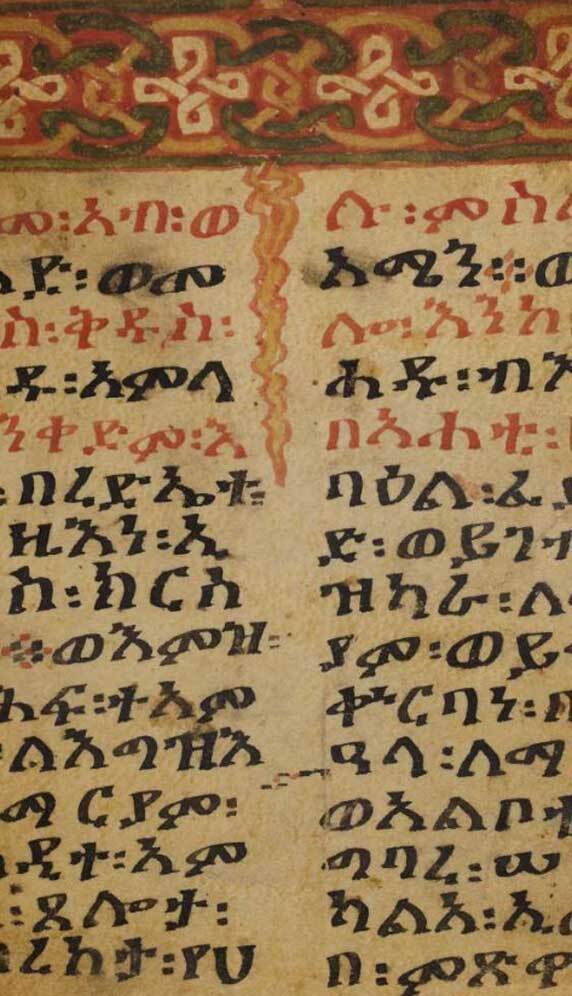 መ፡አብ፡ወ
ልድ፡ወመ
ስ፡ቅዱስ፡
ዱ፡አምላ
ንቀድም፡አ
፡በረድኤተ፡
ዚእነ፡ኢ
ስ፡ክርስ
፨ወእምዝ፡
ሐፍ፡ተአም
፡ለእግዝእ
ማርያም፡
ዲተ፡አም
፡ጸሎታ፡
በረከታ፡የሀ
ሉ፡ምስለ
አሜን፡፡ወ
ሎሙ፡እንከ
ሐዱ፡ብእ
በአሐቲ፡
ባዕል፡ፈ
ድ፡ወይገ
ዝካራ፡ለ
ያም፡ወይ
ቍርባነ፡በ
ዓላ፡ለማ
ወአልቦቱ
ግባረ፡ሠ
ካልእ፡ኢ
በ፡ምጽዋ